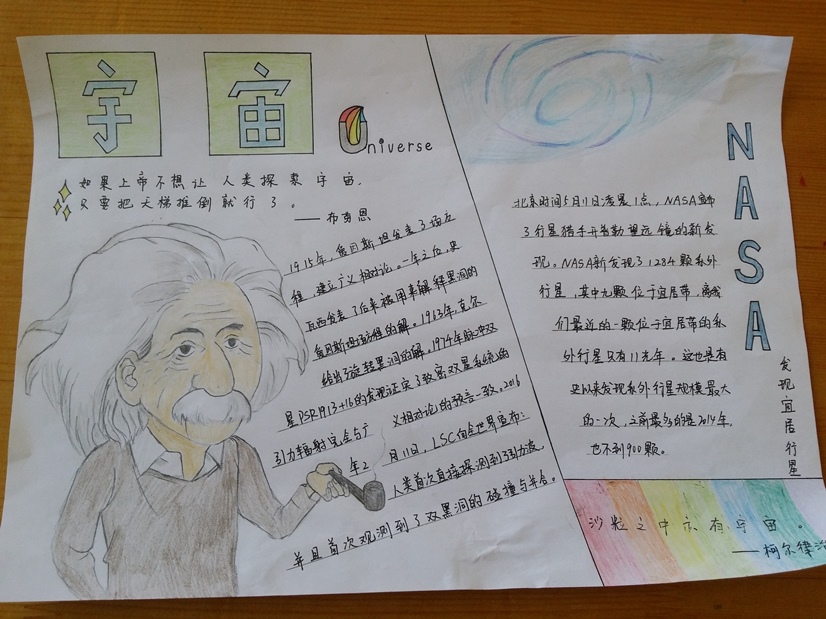 宇宙
Universe
如果上帝不想让人类探索宇宙,
只要把天梯推倒就行了。
——布劳恩
1915年,爱因斯坦发表了场方
程,建立广义相对论。一年之后,史
瓦西发表了后来被用来解释黑洞的
爱因斯坦场方程的解。1963年,克尔
给出了旋转黑洞的解。1974年脉冲双
星PSR1913+16的发现证实了致密双星系统的
引力辐射完全与广义相对论的预言一致。2016
年2月11日,LSC向全世界宣布:
人类首次直接探测到引力波,
并且首次观测到了双黑洞的碰撞与并合。
NASA
发现宜居行星
北京时间5月11日凌晨1点,NASA宣布
了行星猎手开普勒望远镜的新发
现。NASA新发现了1284颗系外
行星,其中九颗位于宜居带,离我
们最近的一颗位于宜居带的系
外行星只有11光年。这也是有
史以来发现系外行星规模最大
的一次,之前最多的是2014年,
也不到900颗。
沙粒之中亦有宇宙。
——柯尔律治